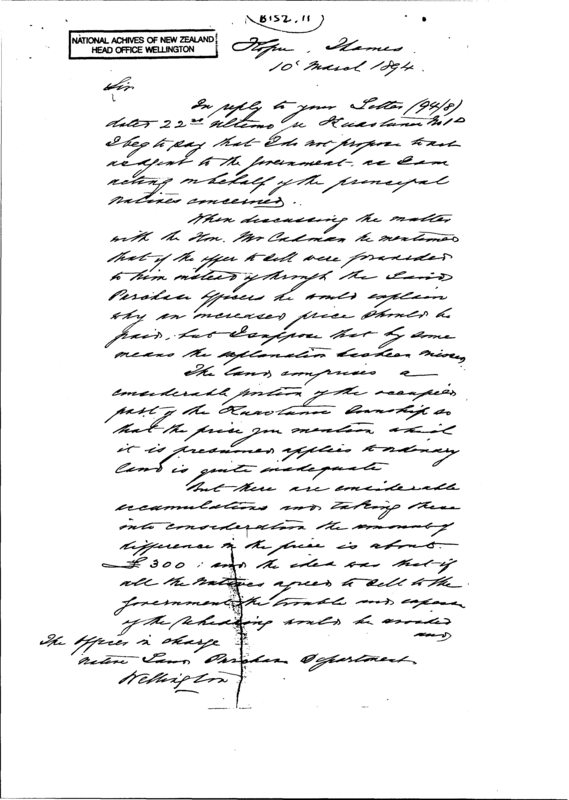 B152.11
NATIONAL ACHIVES OF NEW ZEALAND
HEAD OFFICE WELLINGTON
Thames
10' March 1894.
Sir
In reply to your Letter (94/8)
dated 22nd ultimo re Kuaotunu No 1D
I beg to say that I do not propose to act
as agent to the Government as I am
acting on behalf of the principal
Natives concerned.
When discussing the matter
with the Hon. Mr Cadman he mentioned
that if the offer to sell were forwarded
to him instead of through the Land
Purchase Officers he would explain
why an increased price should be
paid, but I suppose that by some
means the explanation has been missed
The land comprises a
considerable portion of the occupied
part of the Kuaotunu township so
that the price you mention which
it is presumed applies to ordinary
land is quite inadequate
But there are considerable
accumulations and taking these
into consideration the amount of
difference in the price is about
£300: and the idea was that if
all the Natives agreed to sell to the
Government the trouble and expense
of the would be avoided
and
The Officer in charge
Native Land Purchase Department
Wellington